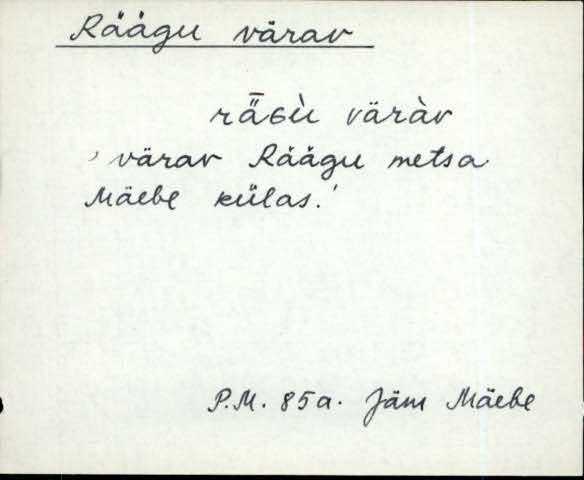 Räägu värav
rǟɢù väràv
'värav Räägu metsa
Mäebe külas.'
P.M. 85a. Jäm Mäebe